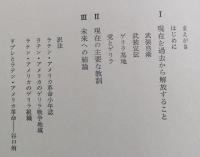 まえがき
はじめに
I 現在を過去から解放すること
武装自衛
武装宣伝
ゲリラ基地
党とゲリラ
II 現在の主要な教訓
III 未来への結論
訳注
ラテン・アメリカ革命小年誌
ラテン・アメリカのゲリラ戦争地域
ラテン・アメリカのゲリラ組織
ドブレとラテン・アメリカ革命――谷口侑